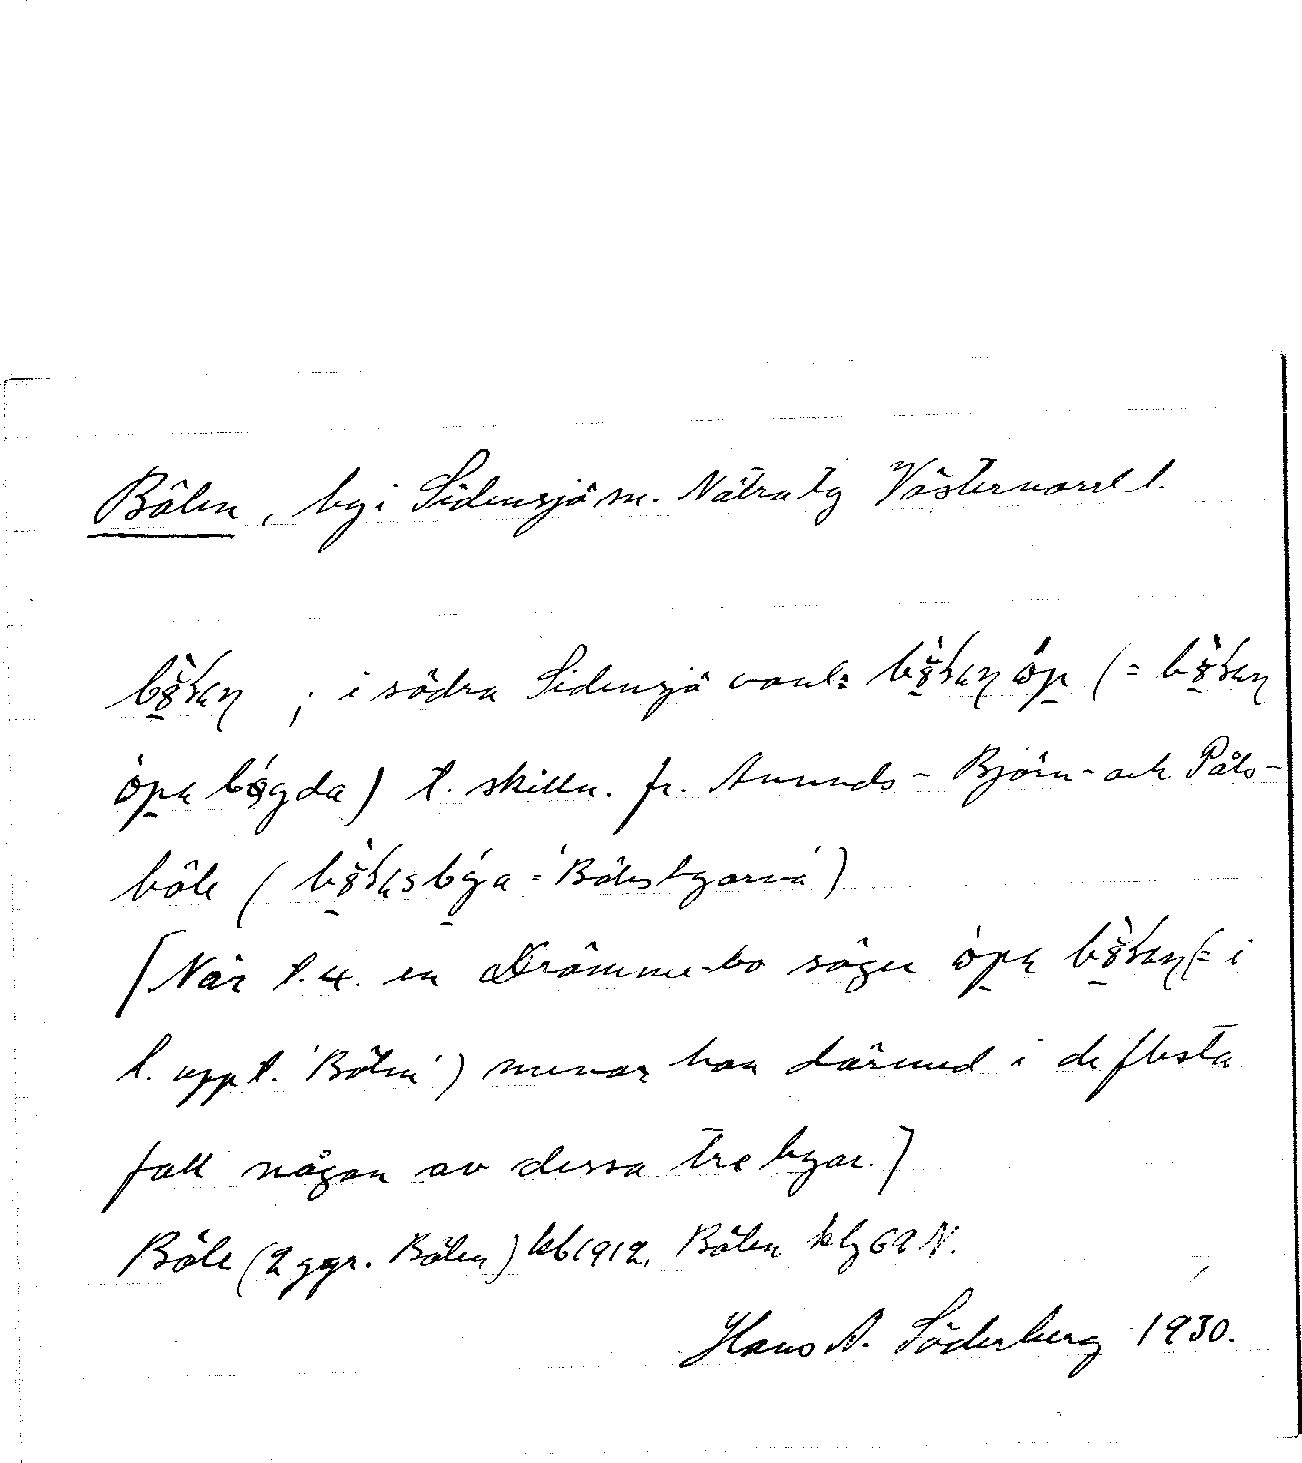 Bölen, by i Sidensjö sn. Nätra tg Västernorrl l.
i södra Sidensjö vanl:
t. skilln. fr. Anunds- Björn- och Påls-
böle ( = 'Bölesbyarna')
[När t.ex. en Drömme-bo säger (= i
l. upp t. 'Bölen') menar han därmed i de flesta
fall någon av dessa tre byar.]
Böle (2 ggr. Bölen) kb 1912, Bölen klg 69 N.
Hans A. Söderberg 1930.